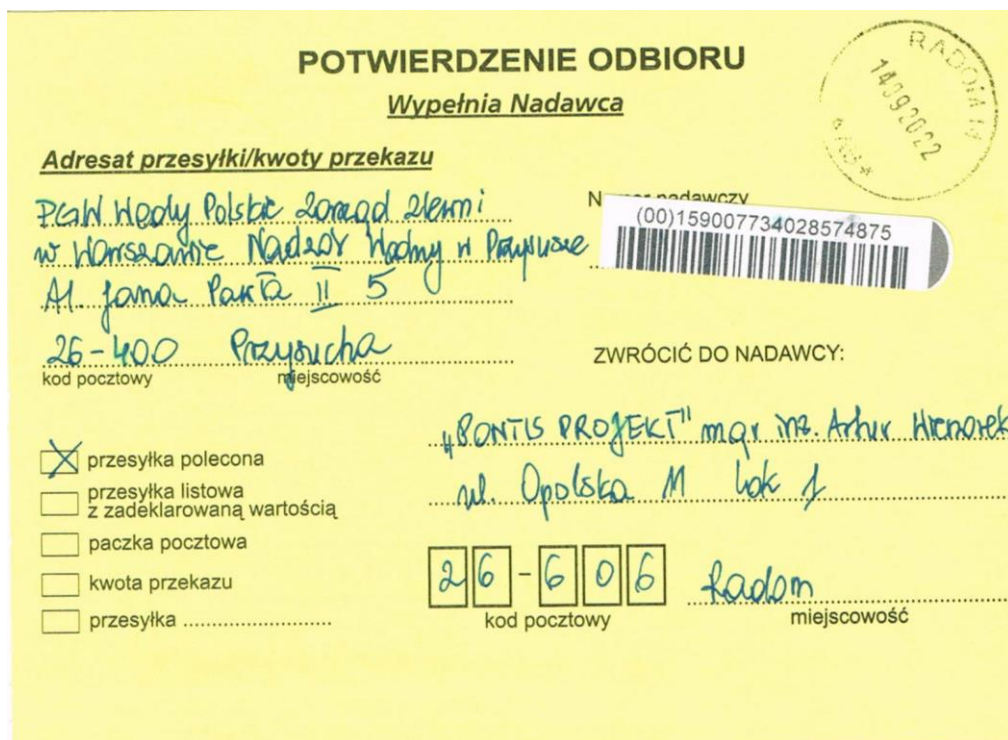 POTWIERDZENIE ODBIORU
Wypełnia Nadawca
RADOM
14092022
Adresat przesyłki/kwoty przekazu
PGW Wody Polskie Zarząd Zlewni
w Warszawie Nadzór Wodny w Przysusze
Al. Jana Pawła II 5
26-400 Przysucha
kod pocztowy miejscowość
Numer nadawczy
(00)159007734028574875
ZWRÓCIĆ DO NADAWCY:
„PONTIS PROJEKT" mgr inż. Artur
ul. Opolska 11 lok 1
26-606 Radom
kod pocztowy miejscowość
przesyłka polecona
przesyłka listowa
z zadeklarowaną wartością
paczka pocztowa
kwota przekazu
przesyłka ..........................